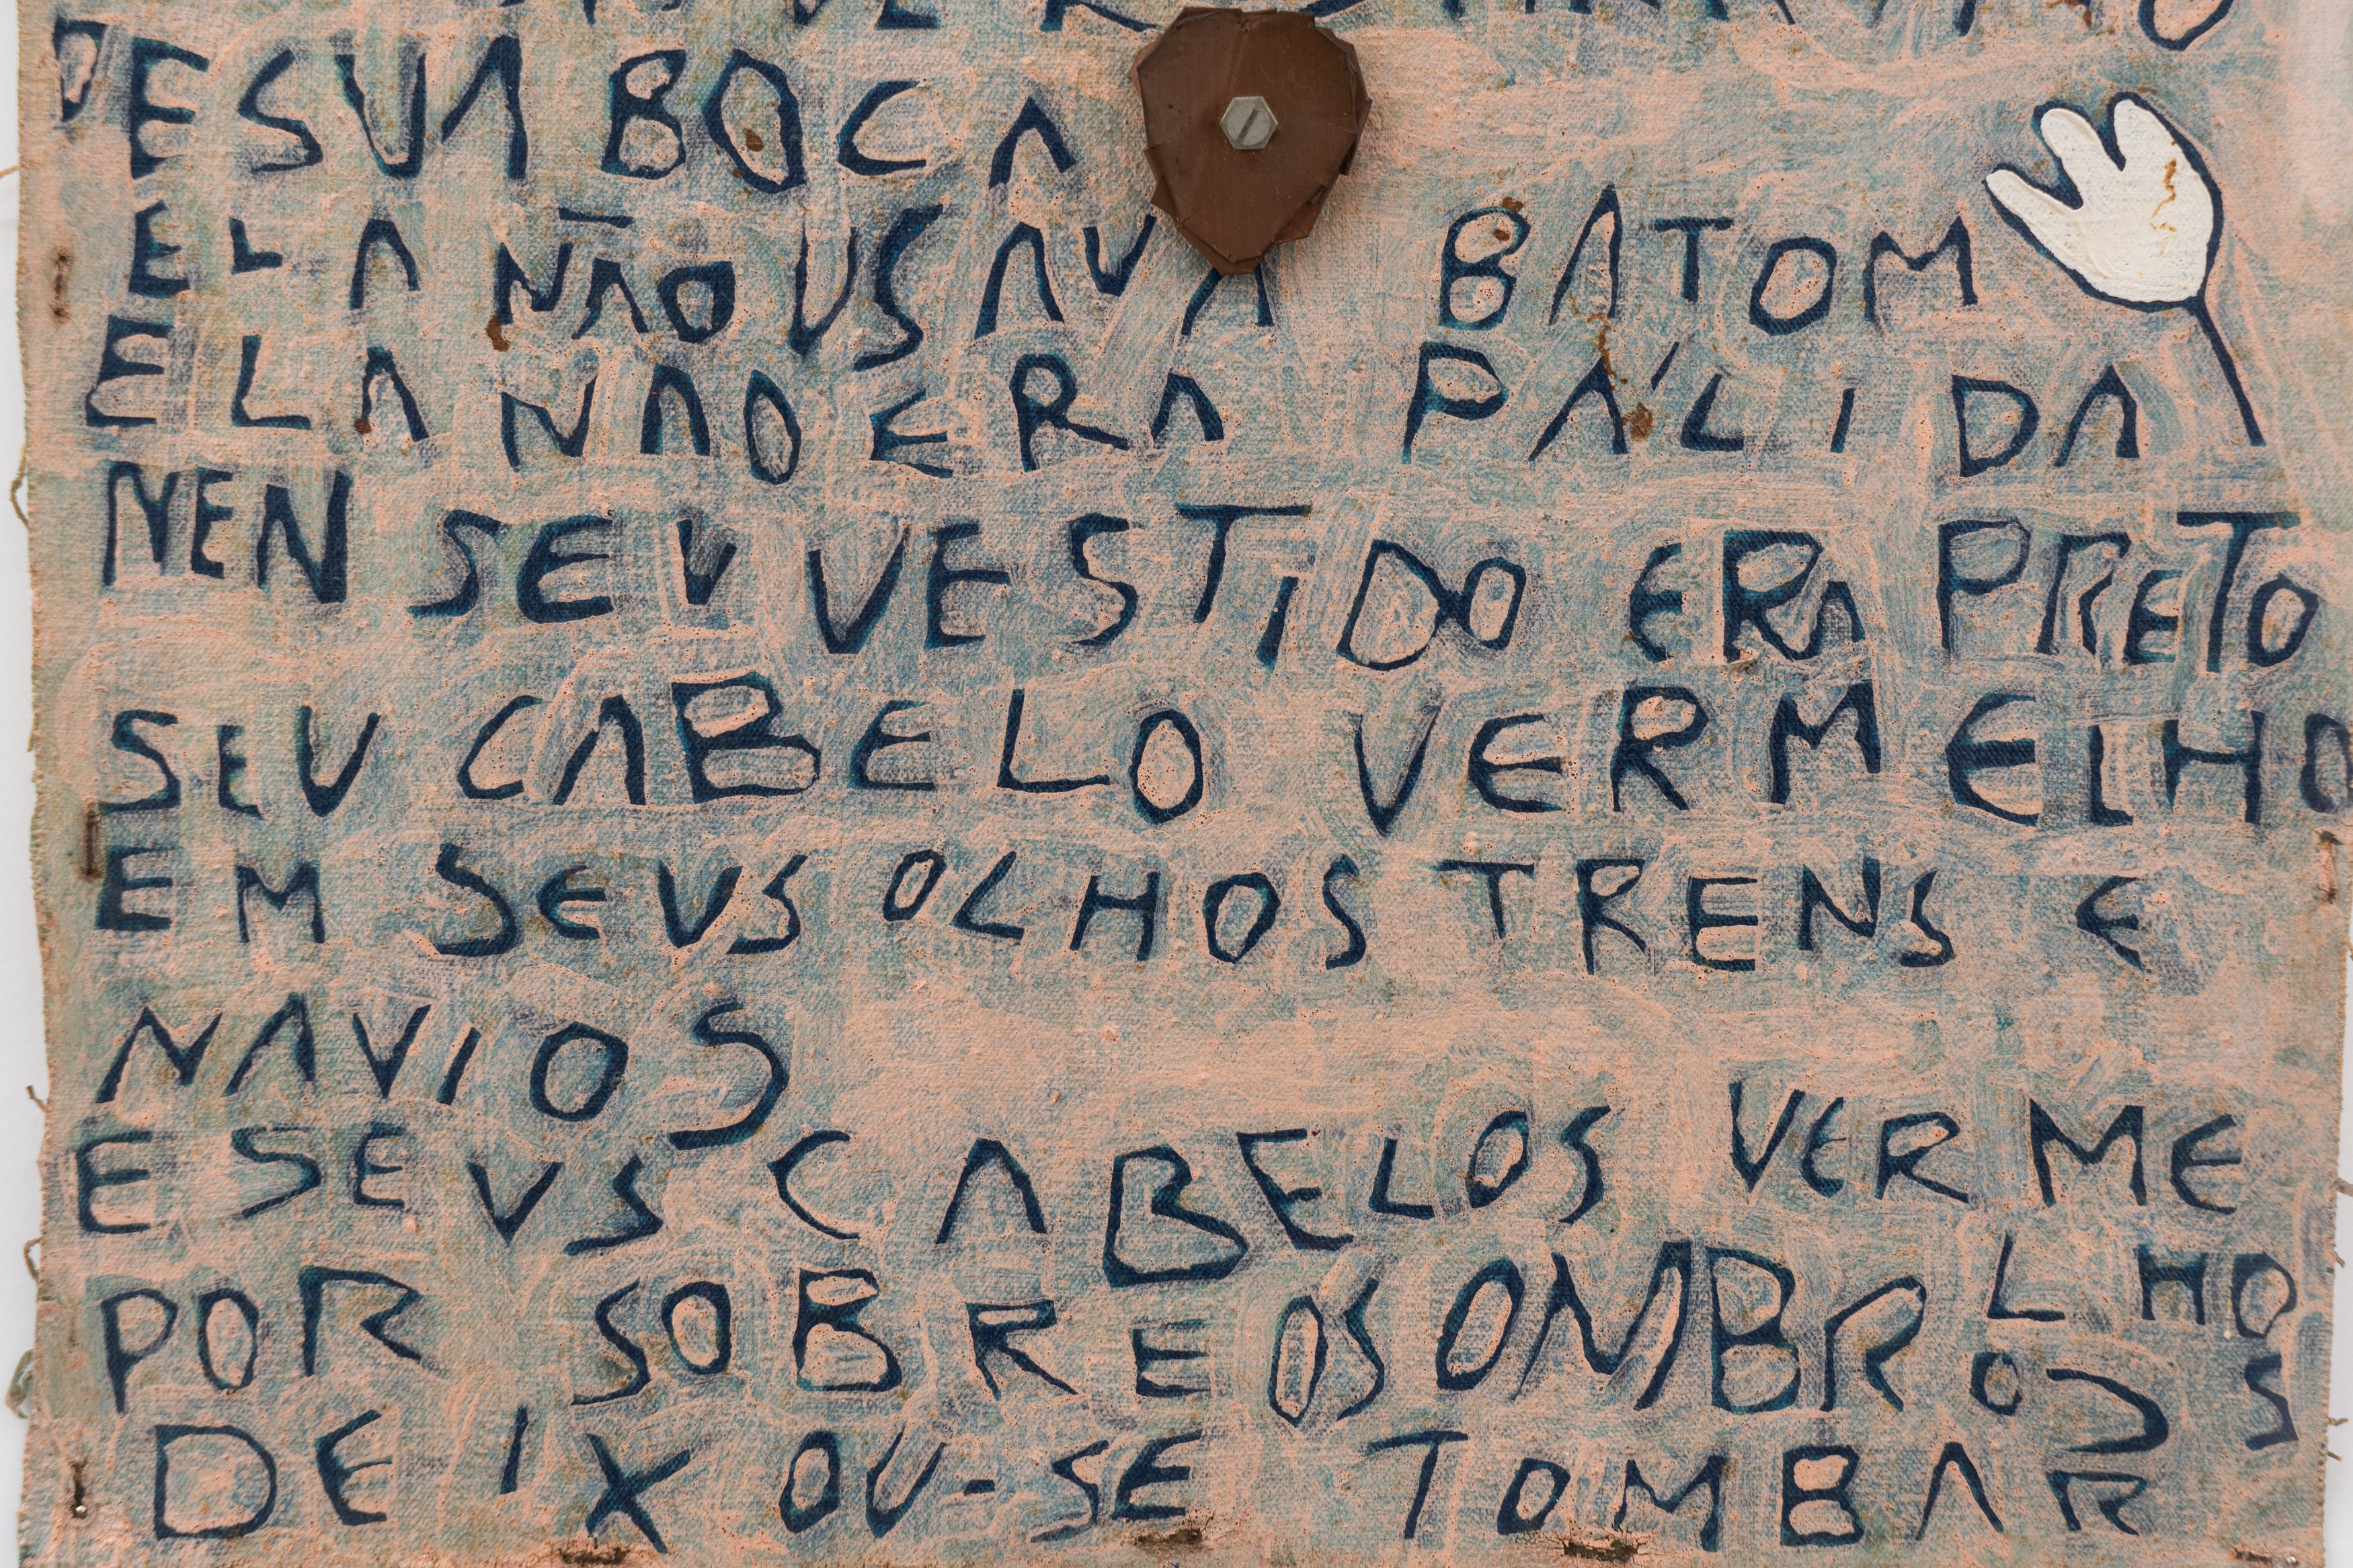 DE SUA BOCA
ELA NÃO USAVA BATOM
ELA NAO ERA PÁLIDA
NEN SEU VESTIDO ERA PRETO
SEU CABELO VERMELHO
EM SEUS OLHOS TRENS E
NAVIOS
E SEUS CABELOS VERMELHOS
POR SOBRE OS OMBROS
DEIXOU-SE TOMBAR